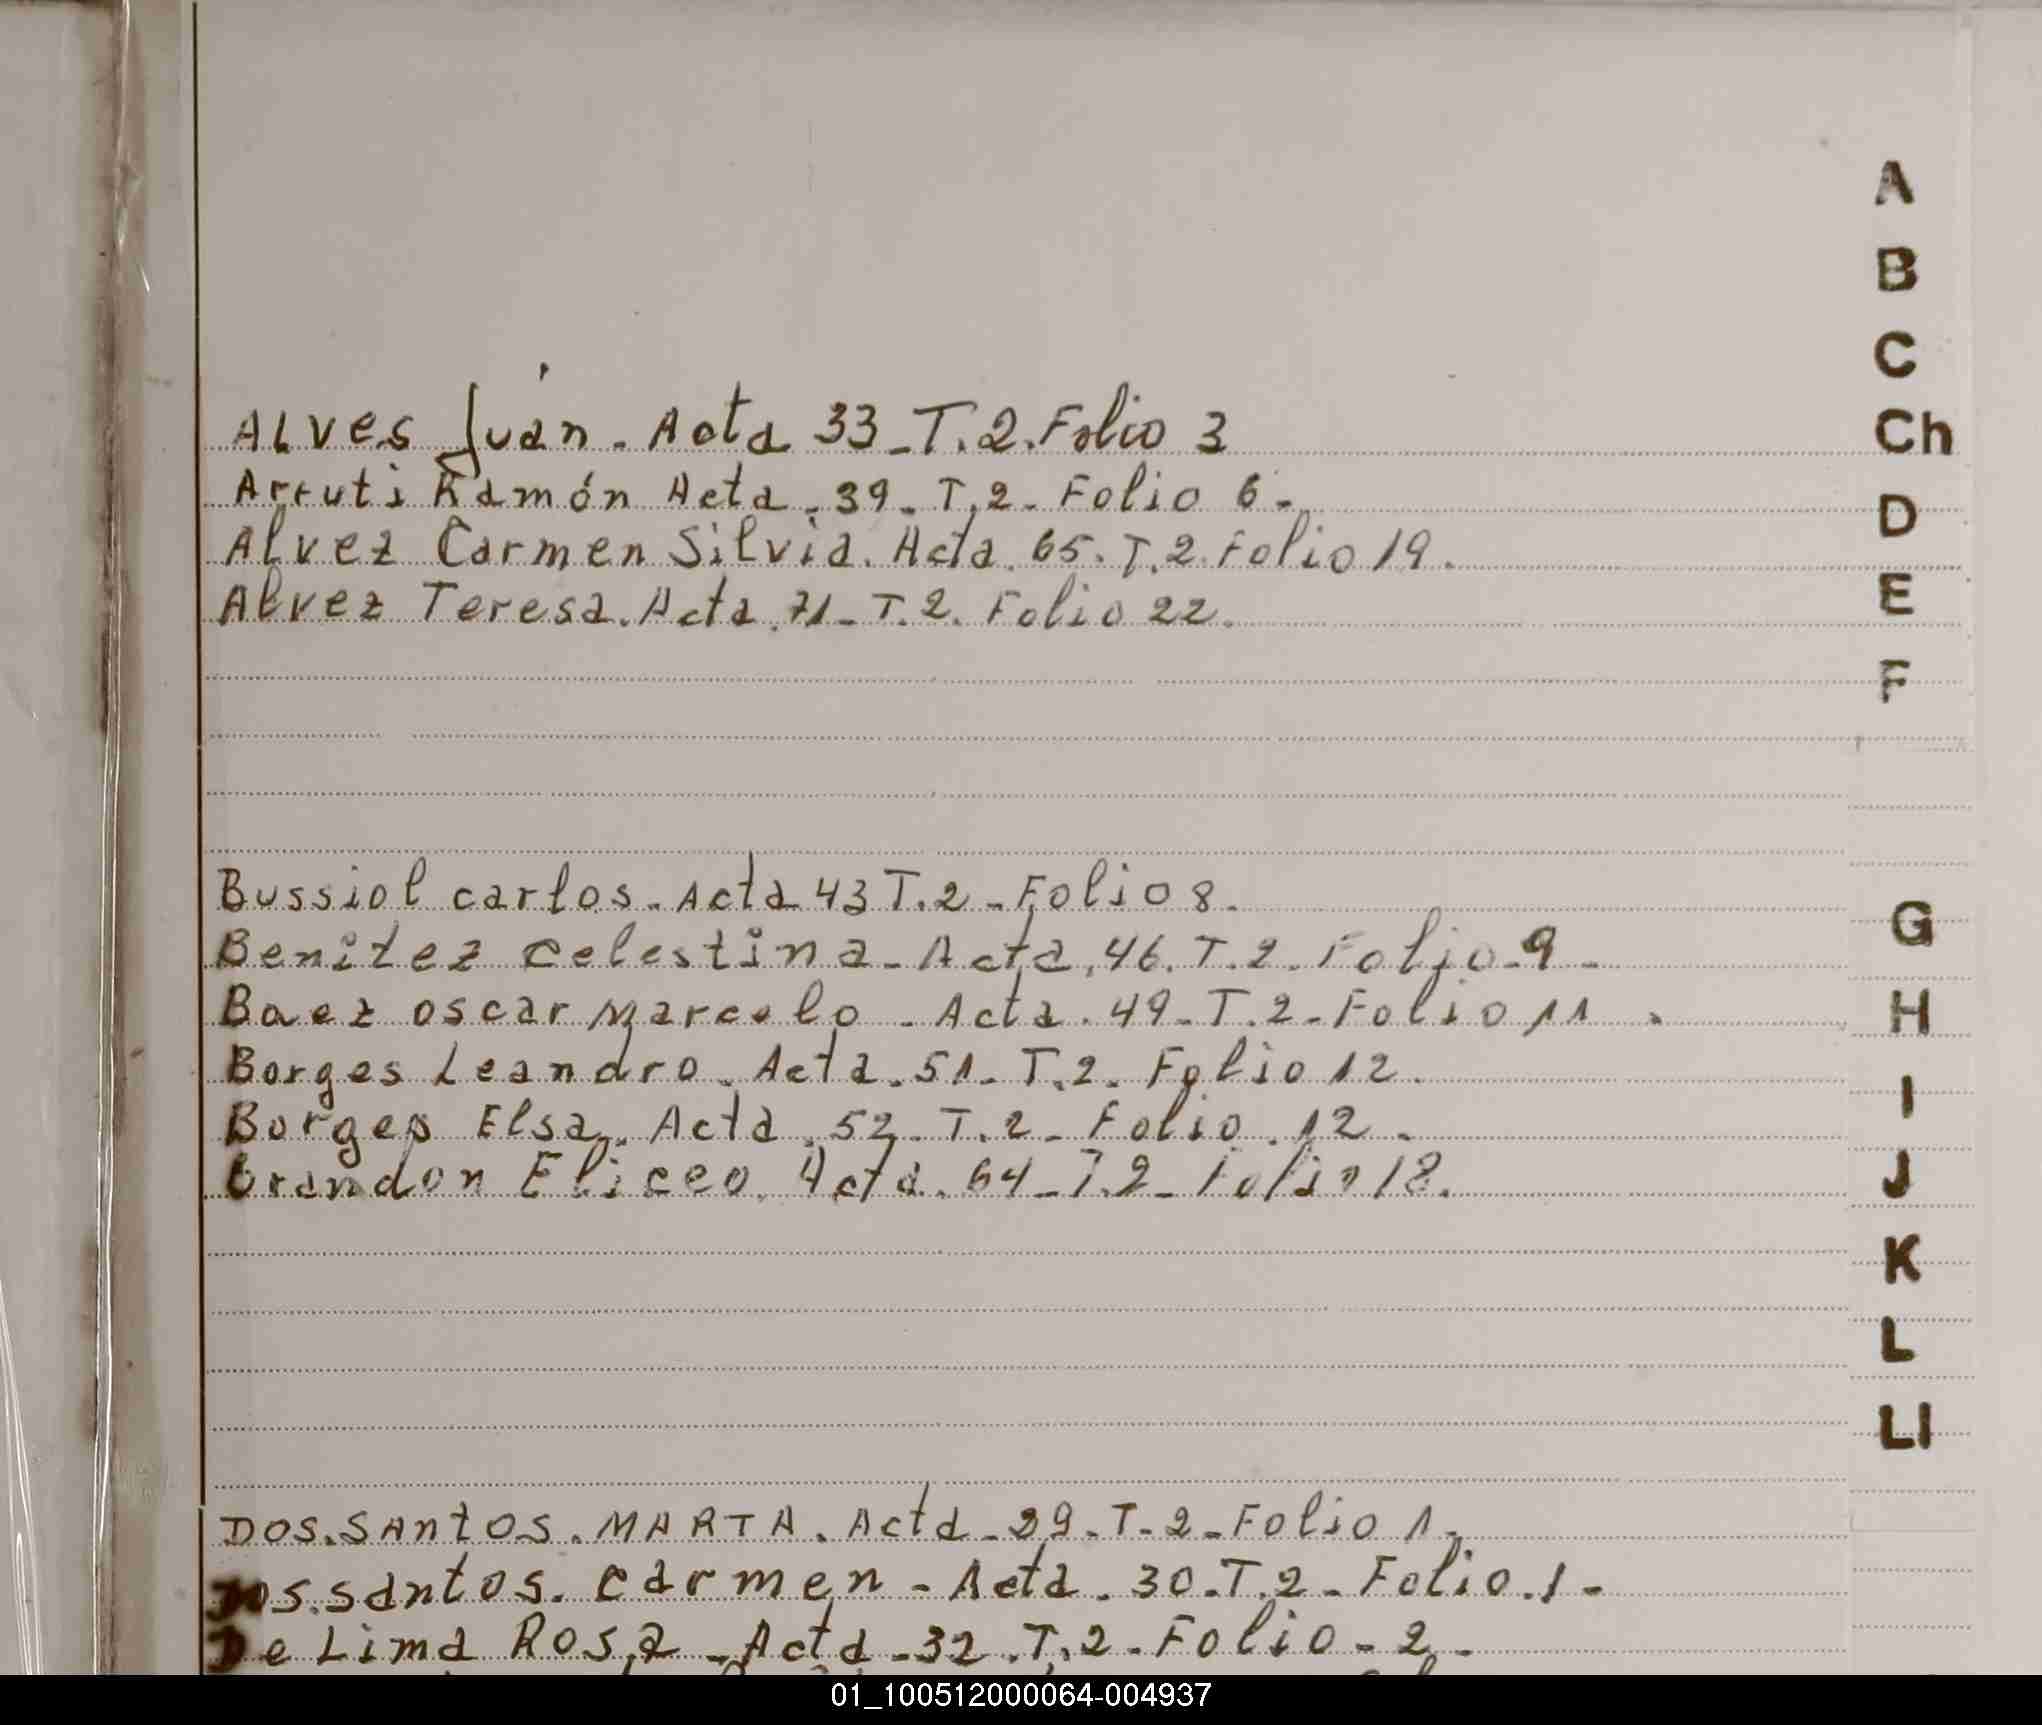 ALVES Juan. Acta 33-T.2.Folio 3
Arruti Ramón Acta-39-T.2-Folio 6-
Alvez Carmen Silvia. Acta. 65. T.2. Folio 19.
Alvez Teresa. Acta. 71-T.2. Folio 22.
Bussiol carlos. Acta 43 T.2-Folio 8.
Benitez Celestina-Acta, 46. T.2. Folio-9-
Baez oscar Marcelo-Acta. 49-T.2-Folio 11.
Borges Leandro. Acta. 51-T.2. Folio 12.
Borges Elsa. Acta. 52-T.2-Folio. 12.
Brandon Eliceo. Acta. 64-T.2-Folio 18.
DOS.SAntOS.MARTA. Acta-29-T-2-Folio 1.
Dos.santos. Carmen-Acta. 30-T.2-Folio.1-
De Lima Rosa-Acta-32.T.2-Folio-2-
A
B
C
Ch
D
E
F
G
H
I
J
K
L
Ll
01_100512000064-004937